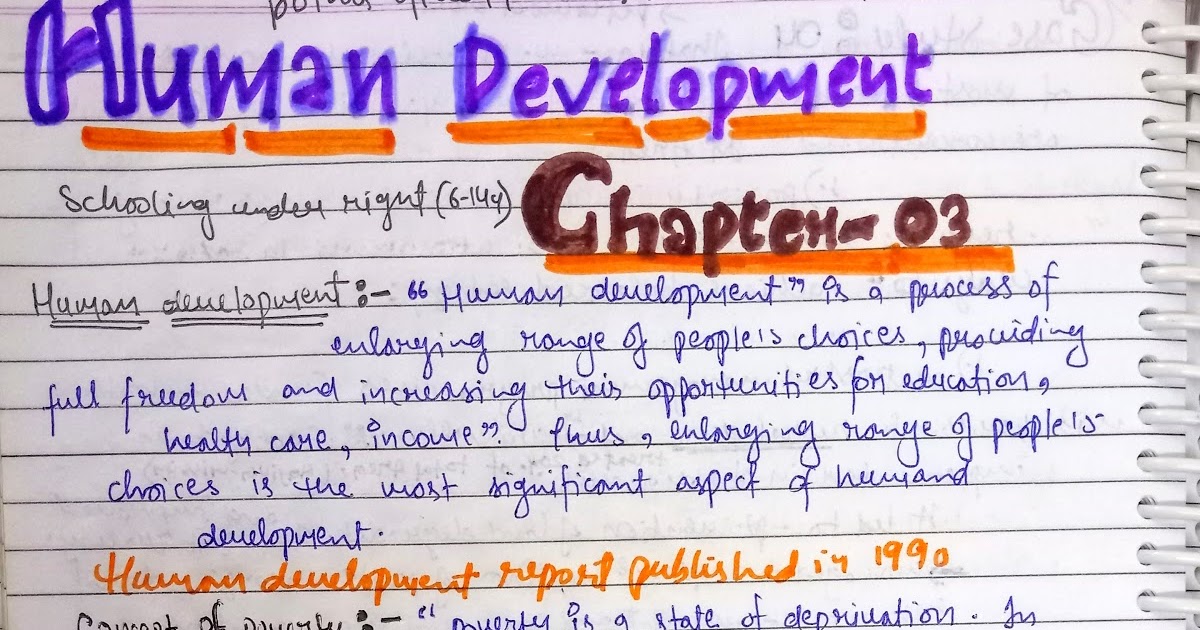 Human Development
Schooling under right (6-14y)
Chapter-03
Human development :- "Human development" is a process of
enlarging range of people's choices, providing
full freedom and increasing their opportunities for education,
health care, income". Thus, enlarging range of people's
choices is the most significant aspect of humand
development.
Human development report published in 1990
Concept of poverty :- "poverty is a state of deprivation. In